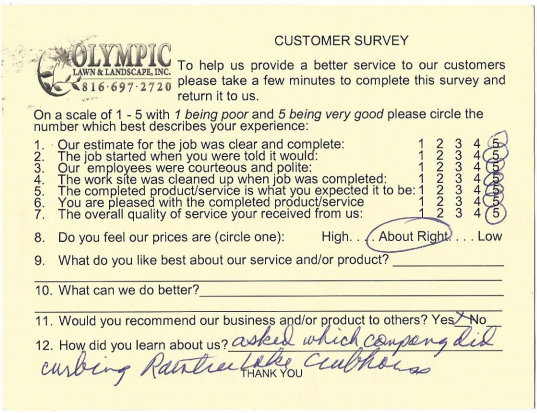 CUSTOMER SURVEY
OLYMPIC
LAWN & LANDSCAPE, INC.
816-697-2720
To help us provide a better service to our customers
please take a few minutes to complete this survey and
return it to us.
On a scale of 1 - 5 with 1 being poor and 5 being very good please circle the
number which best describes your experience:
1. Our estimate for the job was clear and complete: 1 2 3 4 5
2. The job started when you were told it would: 1 2 3 4 5
3. Our employees were courteous and polite: 1 2 3 4 5
4. The work site was cleaned up when job was completed: 1 2 3 4 5
5. The completed product/service is what you expected it to be: 1 2 3 4 5
6. You are pleased with the completed product/service 1 2 3 4 5
7. The overall quality of service your received from us: 1 2 3 4 5
8. Do you feel our prices are (circle one): High. . . . About Right. . . . Low
9. What do you like best about our service and/or product?
10. What can we do better?
11. Would you recommend our business and/or product to others? Yes X No
12. How did you learn about us? asked which compeny did
curbing Raintree Lake Clubhouse
THANK YOU